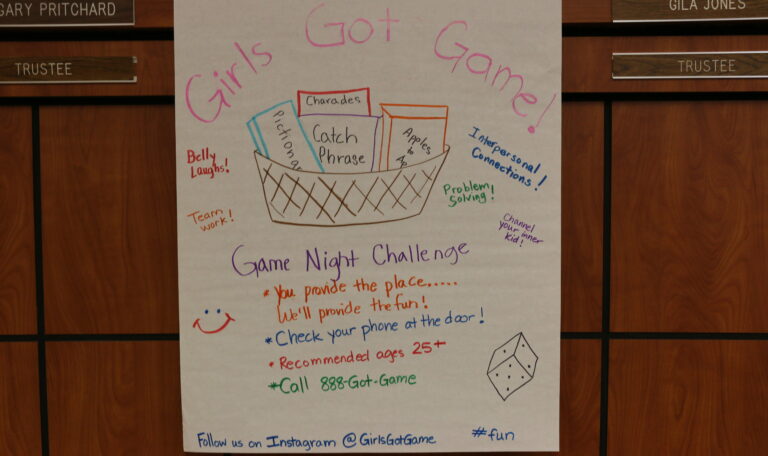 GARY PRITCHARD
GILA JONES
TRUSTEE
TRUSTEE
Girls Got Game!
Charades
Pictionar
Catch
Phrase
Apples
to
Ap
Belly
Laughs!
Interpersonal
Connections!
Problem
Solving!
Team
work!
Channel
your inner
kid!
Game Night Challenge
* You provide the place.....
We'll provide the fun!
* Check your phone at the door!
* Recommended ages 25+
* Call 888-Got-Game
Follow us on Instagram @GirlsGotGame
#fun